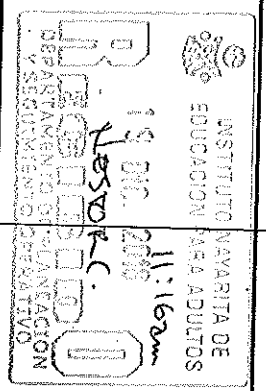 INSTITUTO NAYARITA DE
EDUCACION PARA ADULTOS
11:16am
DIC. 2008
RECIBIDO
DEPARTAMENTO DE PLANEACION
Y SEGUIMIENTO OPERATIVO